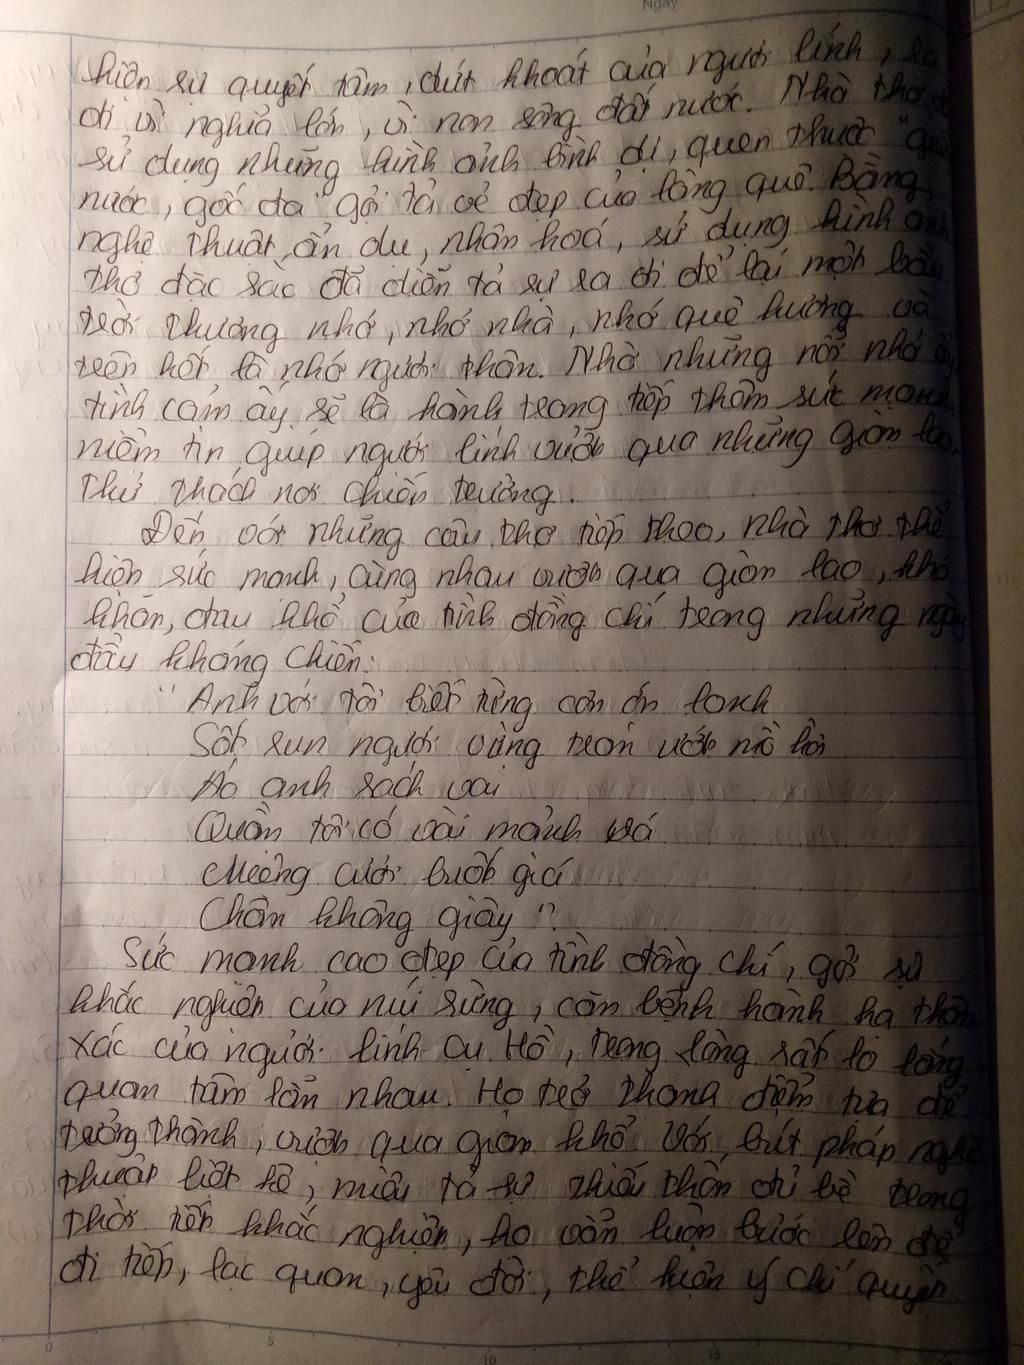 Ngày
hiện sự quyết tâm, dứt khoát của người lính, ra
đi vì nghĩa lớn, vì non sông đất nước. Nhà thơ
sử dụng những hình ảnh bình dị, quen thuộc "giếng
nước, gốc đa" gợi tả vẻ đẹp của làng quê. Bằng
nghệ thuật ẩn dụ, nhân hoá, sử dụng hình ảnh
thơ đặc sắc đã diễn tả sự ra đi để lại một bầu
trời thương nhớ, nhớ nhà, nhớ quê hương và
trên hết là nhớ người thân. Nhờ những nỗi nhớ ấy
tình cảm ấy sẽ là hành trang tiếp thêm sức mạnh,
niềm tin giúp người lính vượt qua những gian lao,
thử thách nơi chiến trường.
Đến với những câu thơ tiếp theo, nhà thơ thể
hiện sức mạnh, cùng nhau vượt qua gian lao, khó
khăn, đau khổ của tình đồng chí trong những ngày
đầu kháng chiến:
"Anh với tôi biết từng cơn ớn lạnh
Sốt run người vừng trán ướt mồ hôi
Áo anh rách vai
Quần tôi có vài mảnh vá
Miệng cười buốt giá
Chân không giày"
Sức mạnh cao đẹp của tình đồng chí, gợi sự
khắc nghiệt của núi rừng, căn bệnh hành hạ thân
xác của người lính cụ Hồ, trong lòng rất lo lắng
quan tâm lẫn nhau. Họ trở thành điểm tựa để
trưởng thành, vượt qua gian khổ. Với bút pháp nghệ
thuật liệt kê, miêu tả sự thiếu thốn đủ bề trong
thời tiết khắc nghiệt, họ vẫn luôn bước lên để
đi tiếp, lạc quan, yêu đời, thể hiện ý chí quyết
0 5 10 15